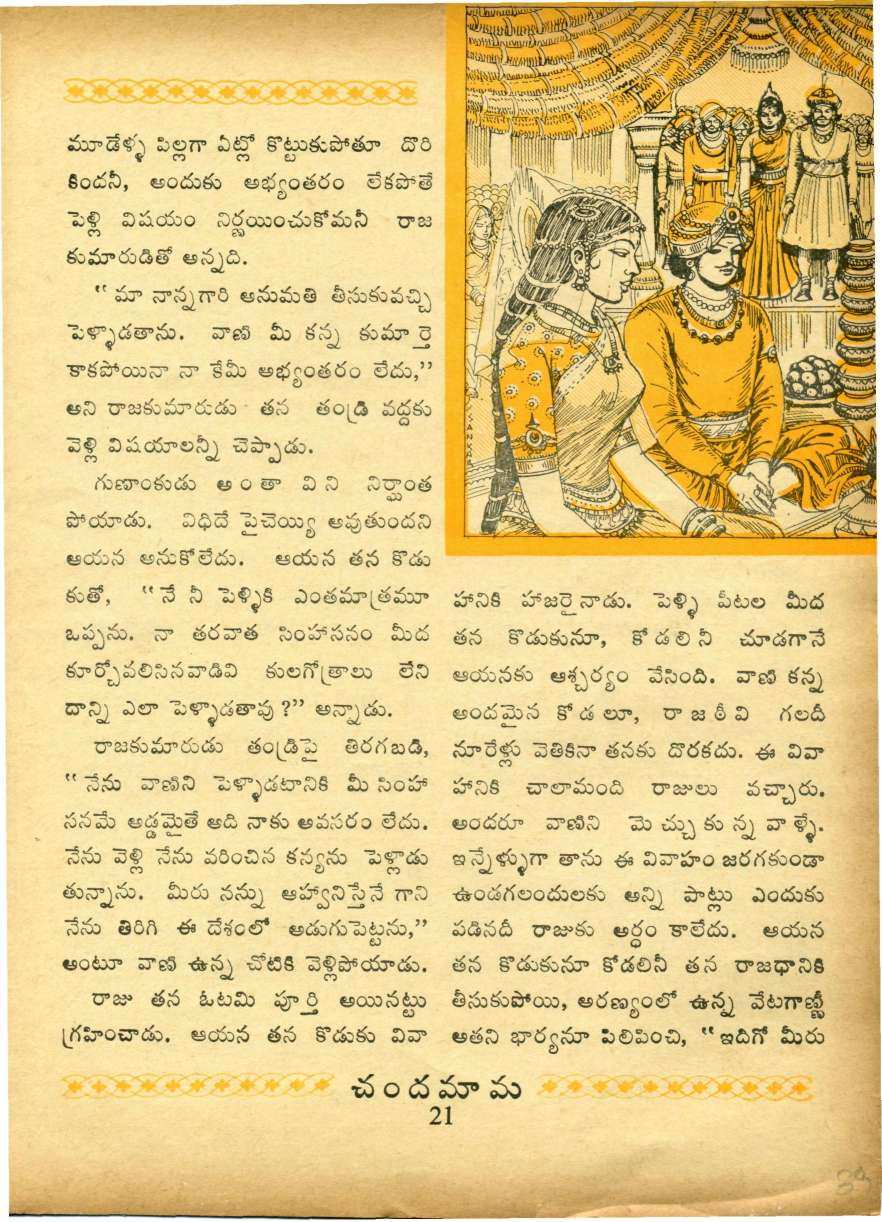 మూడేళ్ళ పిల్లగా ఏట్లో కొట్టుకుపోతూ దొరి
కిందనీ, అందుకు అభ్యంతరం లేకపోతే
పెళ్లి విషయం నిర్ణయించుకోమనీ రాజ
కుమారుడితో అన్నది.
“మా నాన్నగారి అనుమతి తీసుకువచ్చి
పెళ్ళాడతాను. వాణి మీ కన్న కుమార్తె
కాకపోయినా నా కేమీ అభ్యంతరం లేదు,”
అని రాజకుమారుడు తన తండ్రి వద్దకు
వెళ్లి విషయాలన్నీ చెప్పాడు.
గుణాంకుడు అంతా విని నిర్ఘాంత
పోయాడు. విధిదే పైచెయ్యి అవుతుందని
ఆయన అనుకోలేదు. ఆయన తన కొడు
కుతో, “నే నీ పెళ్ళికి ఎంతమాత్రమూ
ఒప్పను. నా తరవాత సింహాసనం మీద
కూర్చోవలిసినవాడివి కులగోత్రాలు లేని
దాన్ని ఎలా పెళ్ళాడతావు?” అన్నాడు.
రాజకుమారుడు తండ్రిపై తిరగబడి,
“నేను వాణిని పెళ్ళాడటానికి మీ సింహా
సనమే అడ్డమైతే అది నాకు అవసరం లేదు.
నేను వెళ్లి నేను వరించిన కన్యను పెళ్లాడు
తున్నాను. మీరు నన్ను ఆహ్వానిస్తేనే గాని
నేను తిరిగి ఈ దేశంలో అడుగుపెట్టను,”
అంటూ వాణి ఉన్న చోటికి వెళ్లిపోయాడు.
రాజు తన ఓటమి పూర్తి అయినట్టు
గ్రహించాడు. ఆయన తన కొడుకు వివా
SANKAR
హానికి హాజరైనాడు. పెళ్ళి పీటల మీద
తన కొడుకునూ, కోడలినీ చూడగానే
ఆయనకు ఆశ్చర్యం వేసింది. వాణి కన్న
అందమైన కోడలూ, రాజఠీవి గలదీ
నూరేళ్లు వెతికినా తనకు దొరకదు. ఈ వివా
హానికి చాలామంది రాజులు వచ్చారు.
అందరూ వాణిని మెచ్చుకున్న వాళ్ళే.
ఇన్నేళ్ళుగా తాను ఈ వివాహం జరగకుండా
ఉండగలందులకు అన్ని పాట్లు ఎందుకు
పడినదీ రాజుకు అర్థం కాలేదు. ఆయన
తన కొడుకునూ కోడలినీ తన రాజధానికి
తీసుకుపోయి, అరణ్యంలో ఉన్న వేటగాణ్ణీ
అతని భార్యనూ పిలిపించి, “ఇదిగో మీరు
చందమామ
21